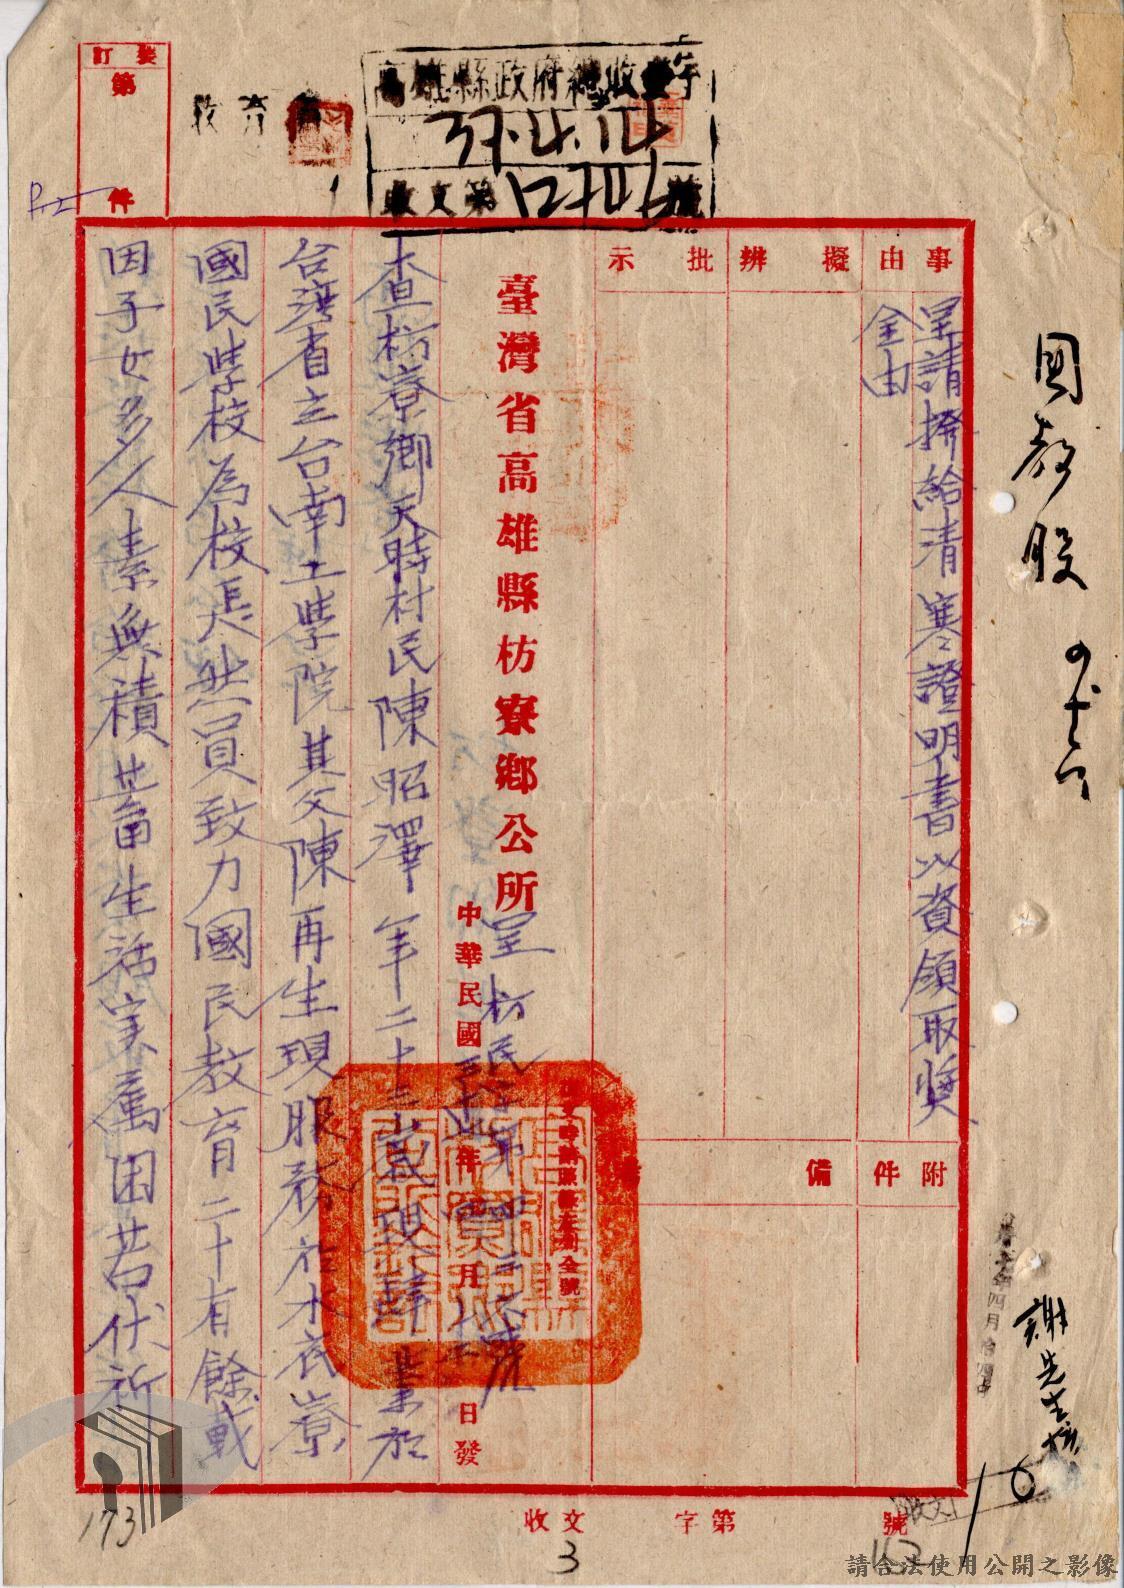 裝訂
第
件
教育
高雄縣政府總收文
37.4.14
收文第
號
國教股
謝先生
事由
擬辦
批示
呈請撥給清寒證明書以資領取獎
金由
附件
備
臺灣省高雄縣枋寮鄉公所呈
中華民國
年
月
日發
查枋寮鄉天時村民陳昭澤年二十三歲現肄業於
台灣省立台南工學院其父陳再生現服務於水底寮
國民學校為校長然員致力國民教育二十有餘載
因子女多人素無積蓄生活實屬困苦伏祈
收文
字第
號
3
16
173
請合法使用公開之影像